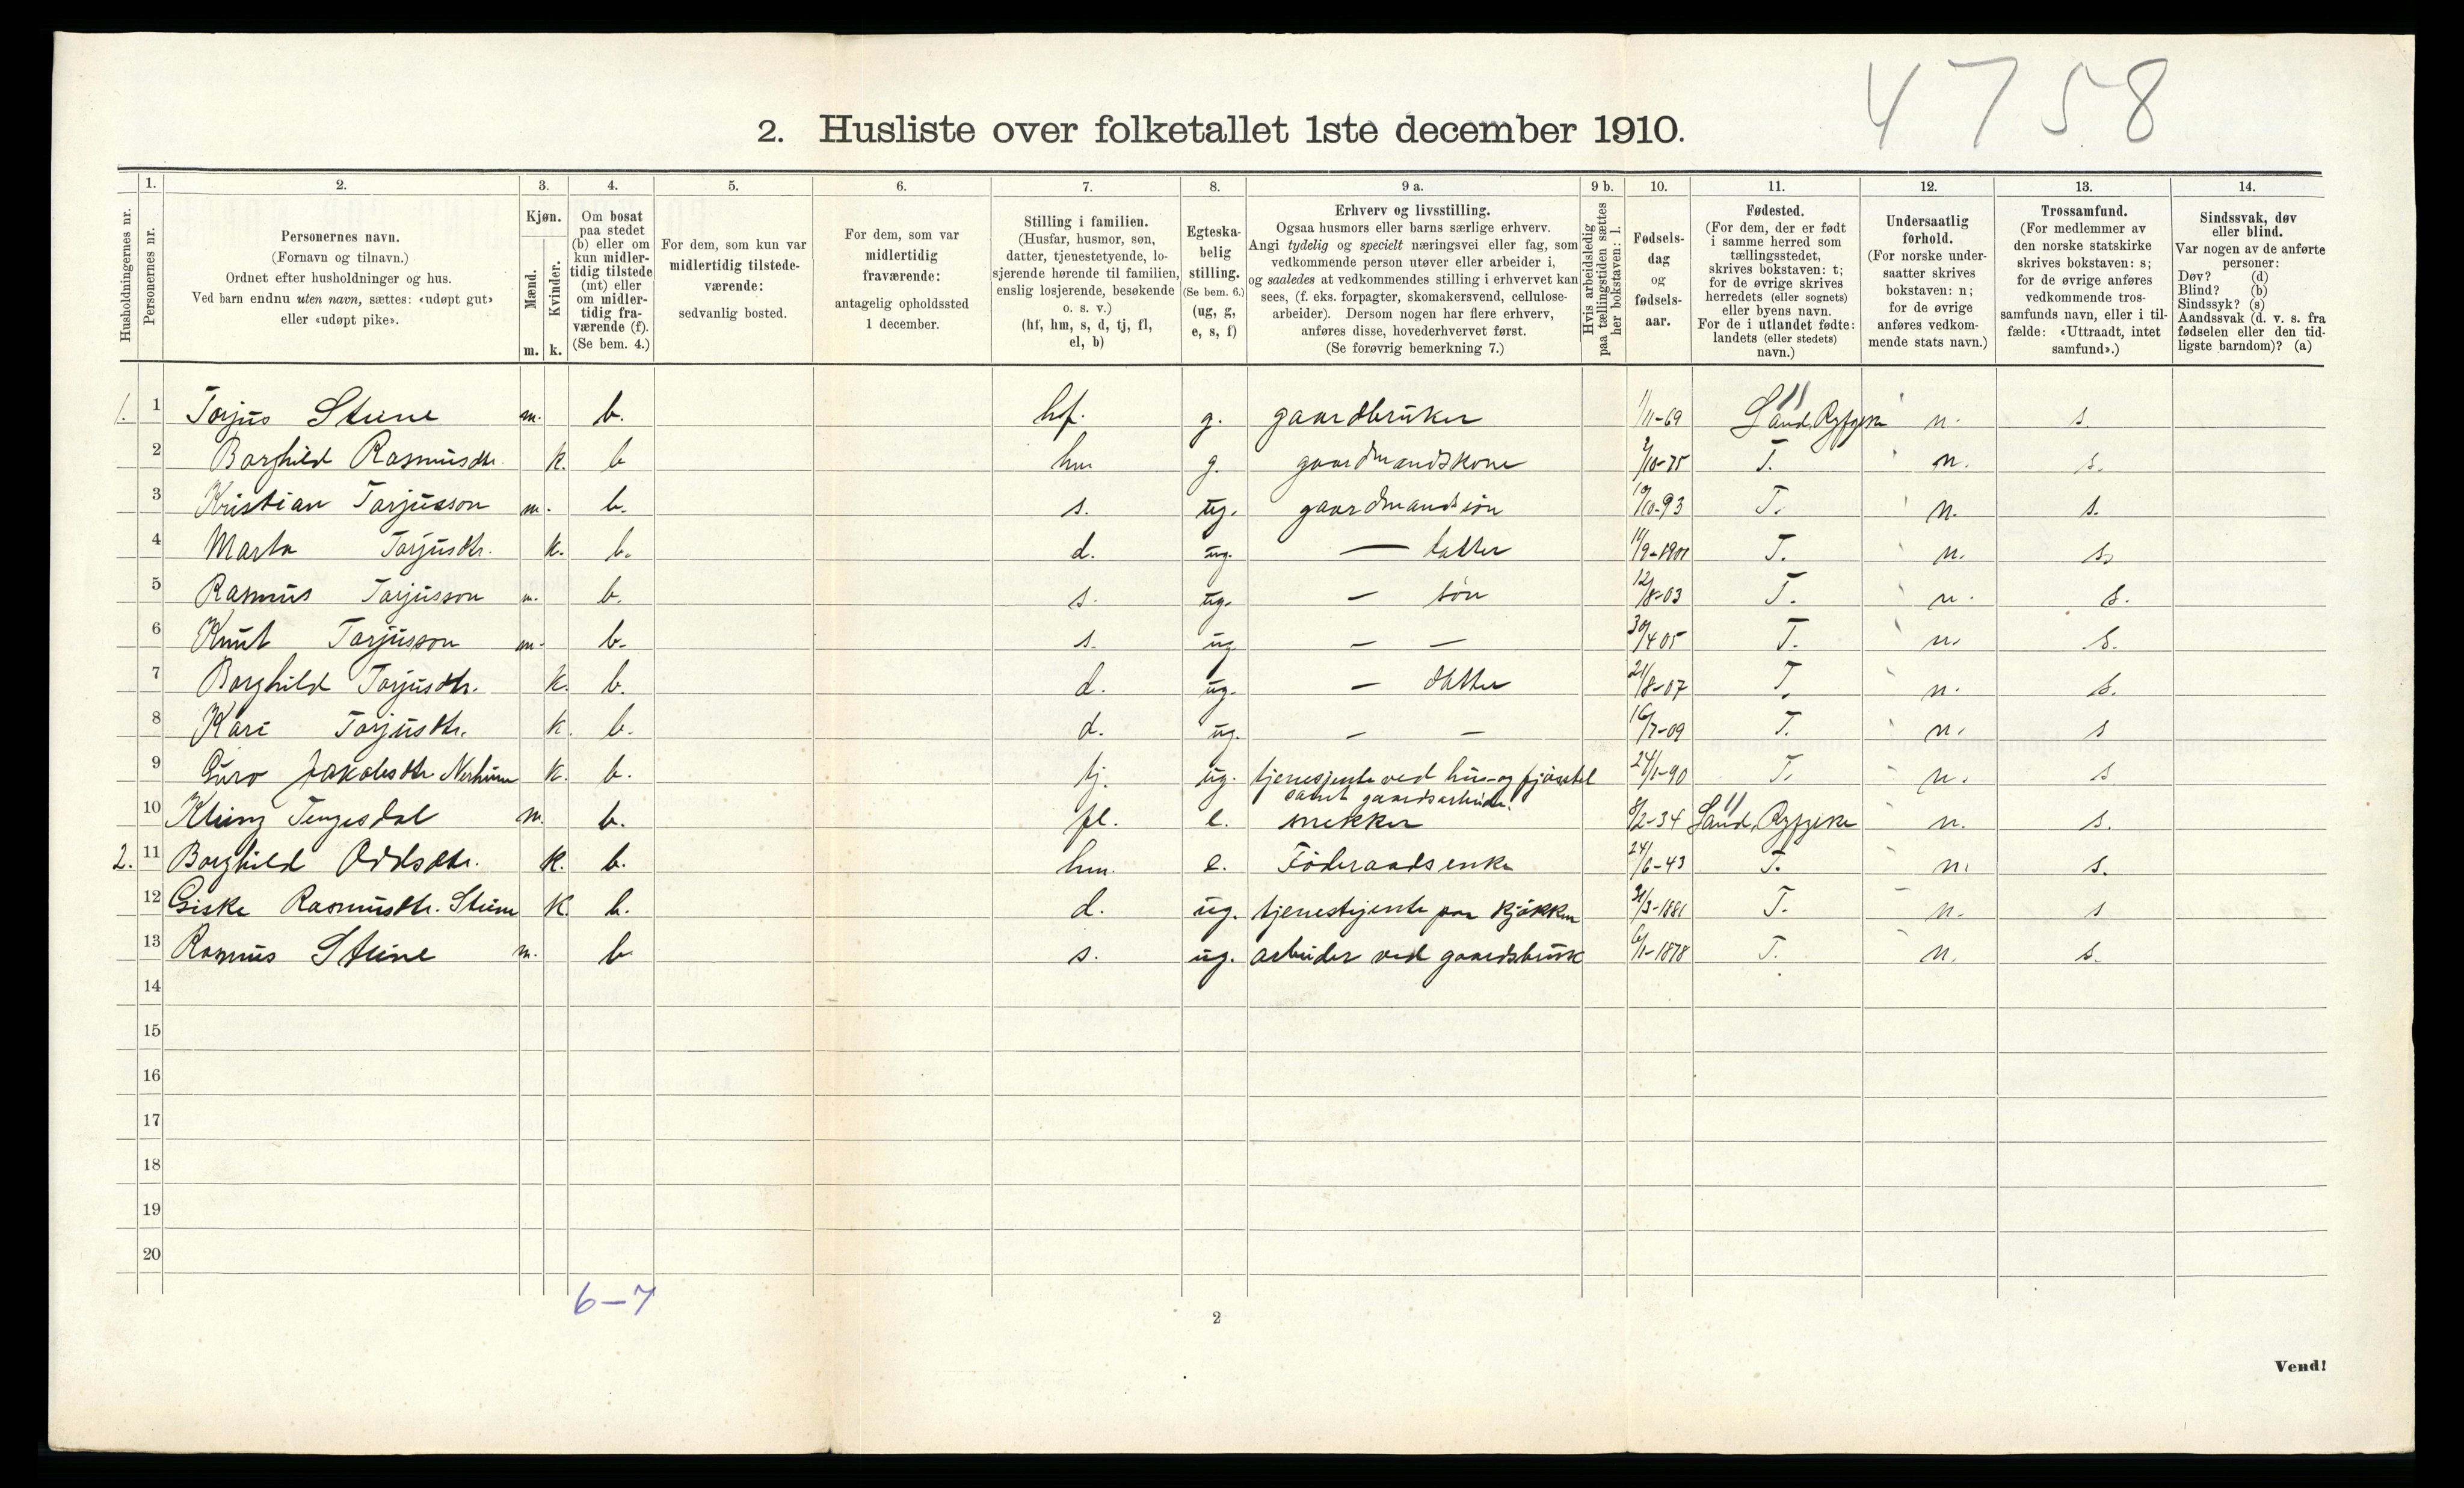 4758
2. Husliste over folketallet 1ste december 1910.
Husholdningernes nr.
1. Personernes nr.
2. Personernes navn.
(Fornavn og tilnavn.)
Ordnet efter husholdninger og hus.
Ved barn endnu uten navn, sættes: «udøpt gut»
eller «udøpt pike».
3. Kjøn.
Mænd. m.
Kvinder. k.
4. Om bosat
paa stedet
(b) eller om
kun midler-
tidig tilstede
(mt) eller
om midler-
tidig fra-
værende (f).
(Se bem. 4.)
5. For dem, som kun var
midlertidig tilstede-
værende:
sedvanlig bosted.
6. For dem, som var
midlertidig
fraværende:
antagelig opholdssted
1 december.
7. Stilling i familien.
(Husfar, husmor, søn,
datter, tjenestetyende, lo-
sjerende hørende til familien,
enslig losjerende, besøkende
o. s. v.)
(hf, hm, s, d, tj, fl,
el, b)
8. Egteska-
belig
stilling.
(Se bem. 6.)
(ug, g,
e, s, f)
9 a. Erhverv og livsstilling.
Ogsaa husmors eller barns særlige erhverv.
Angi tydelig og specielt næringsvei eller fag, som
vedkommende person utøver eller arbeider i,
og saaledes at vedkommendes stilling i erhvervet kan
sees, (f. eks. forpagter, skomakersvend, cellulose-
arbeider). Dersom nogen har flere erhverv,
anføres disse, hovederhvervet først.
(Se forøvrig bemerkning 7.)
9 b. Hvis arbeidsledig
paa tællingstiden sættes
her bokstaven: l.
10. Fødsels-
dag
og
fødsels-
aar.
11. Fødested.
(For dem, der er født
i samme herred som
tællingsstedet,
skrives bokstaven: t;
for de øvrige skrives
herredets (eller sognets)
eller byens navn.
For de i utlandet fødte:
landets (eller stedets)
navn.)
12. Undersaatlig
forhold.
(For norske under-
saatter skrives
bokstaven: n;
for de øvrige
anføres vedkom-
mende stats navn.)
13. Trossamfund.
(For medlemmer av
den norske statskirke
skrives bokstaven: s;
for de øvrige anføres
vedkommende tros-
samfunds navn, eller i til-
fælde: «Uttraadt, intet
samfund».)
14. Sindssvak, døv
eller blind.
Var nogen av de anførte
personer:
Døv? (d)
Blind? (b)
Sindssyk? (s)
Aandssvak (d. v. s. fra
fødselen eller den tid-
ligste barndom)? (a)
1. 1 Torjus Steine m. b. hf. g. gaardbruker 1/11-69 Sand, Ryfylke n. s.
2 Borghild Rasmusdtr. k. b hm g. gaardmandskone 2/10-75 T. n. s.
3 Kristian Torjusson m. b. s. ug. gaardmandsøn 10/10-93 T. n. s.
4 Marta Torjusdtr. k. b. d. ug. — datter T. n. s.
5 Rasmus Torjusson m. b. s. ug. — søn 12/8-03 T. n. s.
6 Knut Torjusson m. b. s. ug — — 30/4 05 T. n. s.
7 Borghild Torjusdtr. k. b. d. ug. — datter 21/8-07 T. n. s.
8 Kari Torjusdtr. k. b. d. ug. — — 16/7-09 T. n. s
9 Guro Jakobsdtr. k. b. tj. ug. tjenesjente ved hus- og fjøsstel
samt gaardsarbeide. 24/1-90 T. n. s
10 Tengesdal m. b. fl. e. snekker 8/2-34 Sand, Ryfylke n. s.
2. 11 Borghild Oddsdtr. k. b. hm. e. Föderaadsenke 24/6-43 T. n. s.
12 Giske Rasmusdtr. Steine k. b. d. ug. tjenestejente paa kjøkken T. n. s
13 Rasmus Steine m. b s. ug. arbeider ved gaardsbruk 6/1-1878 T. n. s.
14
15
16
17
18
19
20
6-7
2
Vend!